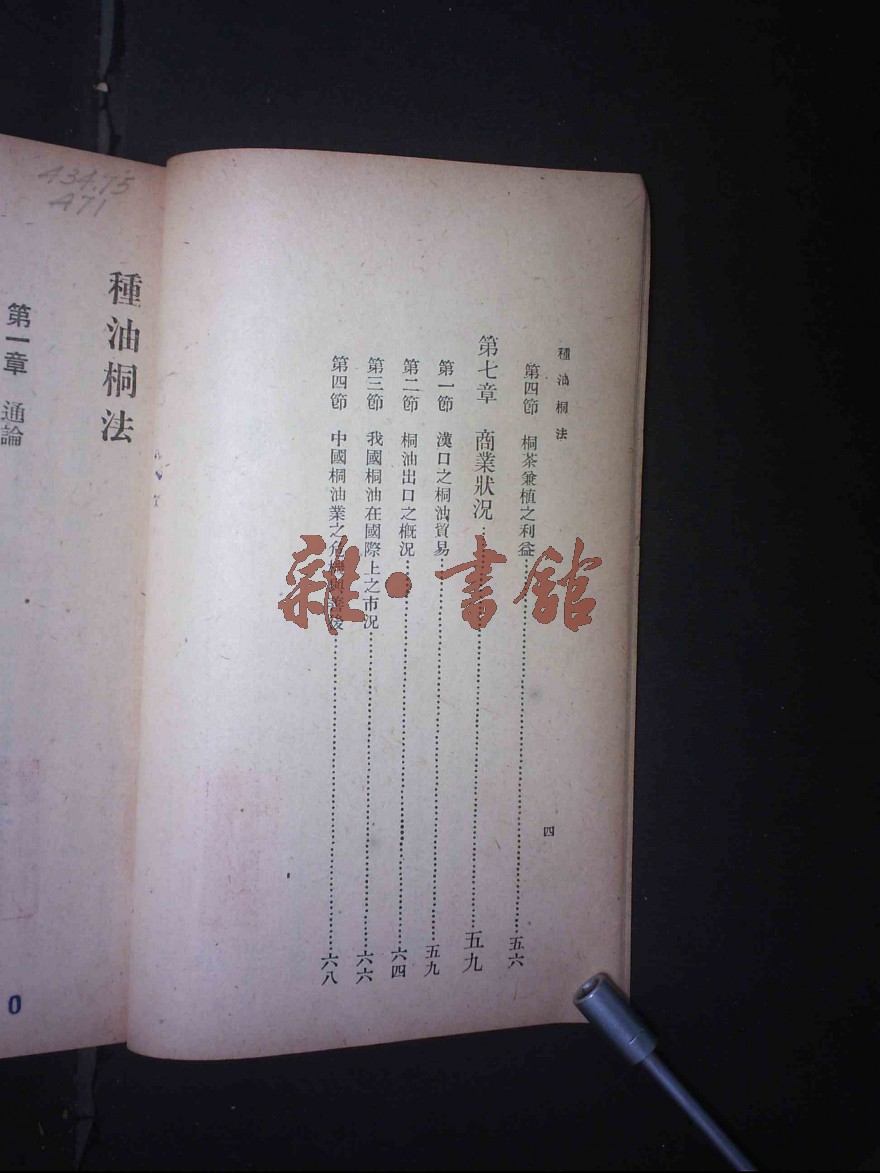 種油桐法
第四節 桐茶兼植之利益……五六
第七章 商業狀況……五九
第一節 漢口之桐油貿易……五九
第二節 桐油出口之概況……六四
第三節 我國桐油在國際上之市況……六六
第四節 中國桐油業之危機與善後……六八
四
雜·書館
434.75
A71
種油桐法
第一章 通論
0